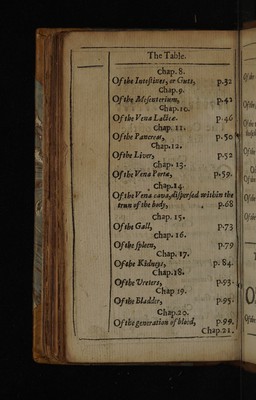 The Table.
Chap. 8.
Of the Intestines, or Guts, p.32
Chap.9.
Of the Mesenterium, p.42
Chap.10.
Of the Vena Lactea. p.46
Chap. 11.
Of the Pancreas, p.50
Chap.12.
Of the Liver, p.52
Chap. 13.
Of the Vena Porta, p.59.
Chap.14.
Of the Vena cava, dispersed within the
trun of the body, p.68
Chap. 15.
Of the Gall, p.73
Chap. 16.
Of the spleen, p.79
Chap. 17.
Of the Kidneys, p. 84.
Chap.18.
Of the Ureters, p.93.
Chap 19.
Of the Bladder, p.95.
Chap.20.
Of the generation of blood, p.99.
Chap.21.